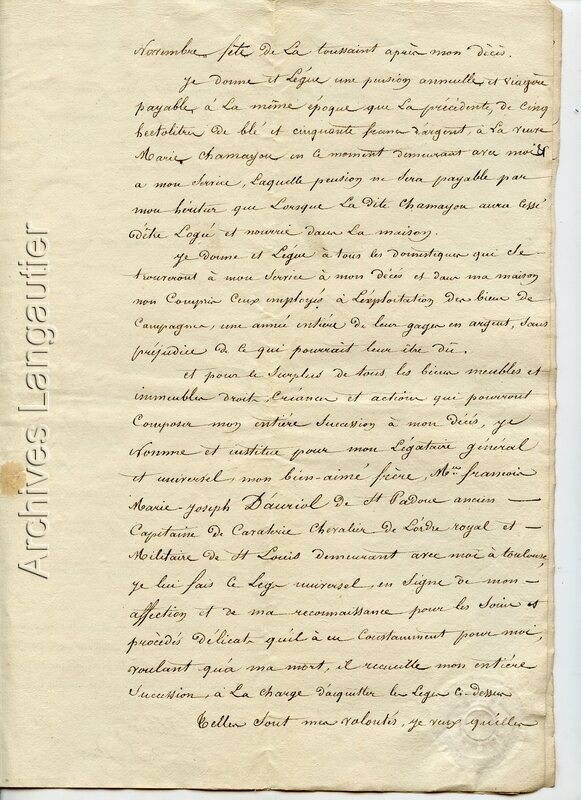 Novembre, fête de La toussaint après mon décès.
Je donne et Légue une pension annuelle et viagère
payable, à La même époque que La précédente, de cinq
hectolitres de blé et cinquante francs d'argent, à La veuve
Marie Chamayou en ce moment demeurant avec moi et
a mon Service, Laquelle pension ne Sera payable par
mon héritier que Lorsque La dite Chamayou aura cessé
d'être Logée et nourrie dans La maison.
Je donne et Légue à tous les domestiques qui Se
trouveront à mon Service à mon décès et dans ma maison
non Compris Ceux employés à L'exploitation des biens de
Campagne, une année entière de leur gages en argent, Sans
préjudice de ce qui pourrait leur être dû.
et pour le Surplus de tous les biens meubles et
immeubles droits, Créances et actions qui pourront
Composer mon entière Succession à mon décès, je
Nomme et institue pour mon Légataire général
et universel, mon bien-aimé frère, Mr. françois
Marie-Joseph D'auriol de St Padoue ancien
Capitaine de Cavalerie Chevalier de L'ordre royal et
Militaire de St Louis demeurant avec moi à toulouse,
je lui fais ce Legs universel, en Signe de mon
affection et de ma reconnaissance pour les Soins et
procédés délicats qu'il à eu Constamment pour moi,
voulant qu'à ma mort, il recueille mon entière
Succession, à La charge d'acquitter les Legs Ci-dessus
Telles Sont mes volontés, je veux qu'elles
Archives Langautier